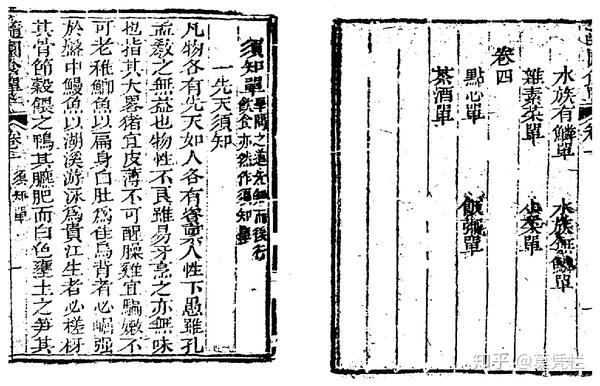 水族有鱗單　水族無鱗單
雜素菜單　小菜單
卷四
點心單　飯粥單
茶酒單
須知單
學問之道先知而後行
飲食亦然作須知單
一先天須知
凡物各有先天如人各有資禀人性下愚雖孔
孟教之無益也物性不良雖易牙烹之亦無味
也指其大畧猪宜皮薄不可腥臊雞宜騸嫩不
可老稚鯽魚以扁身白肚爲佳烏背者必崛强
於盤中鰻魚以湖溪游泳爲貴江生者必槎枒
其骨節穀餵之鴨其膘肥而白色壅土之笋其
隨園食單　須知單　一